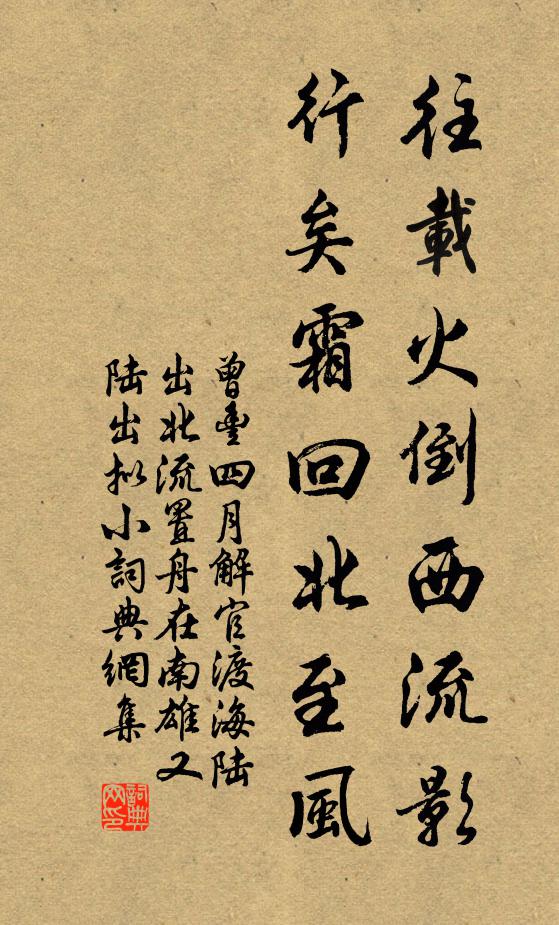 往載火倒西流影
行矣霜回北至風
曾豐四月解官渡海陆
出北流置舟在南雄又
陆出拟小詞典網集
詞典网印